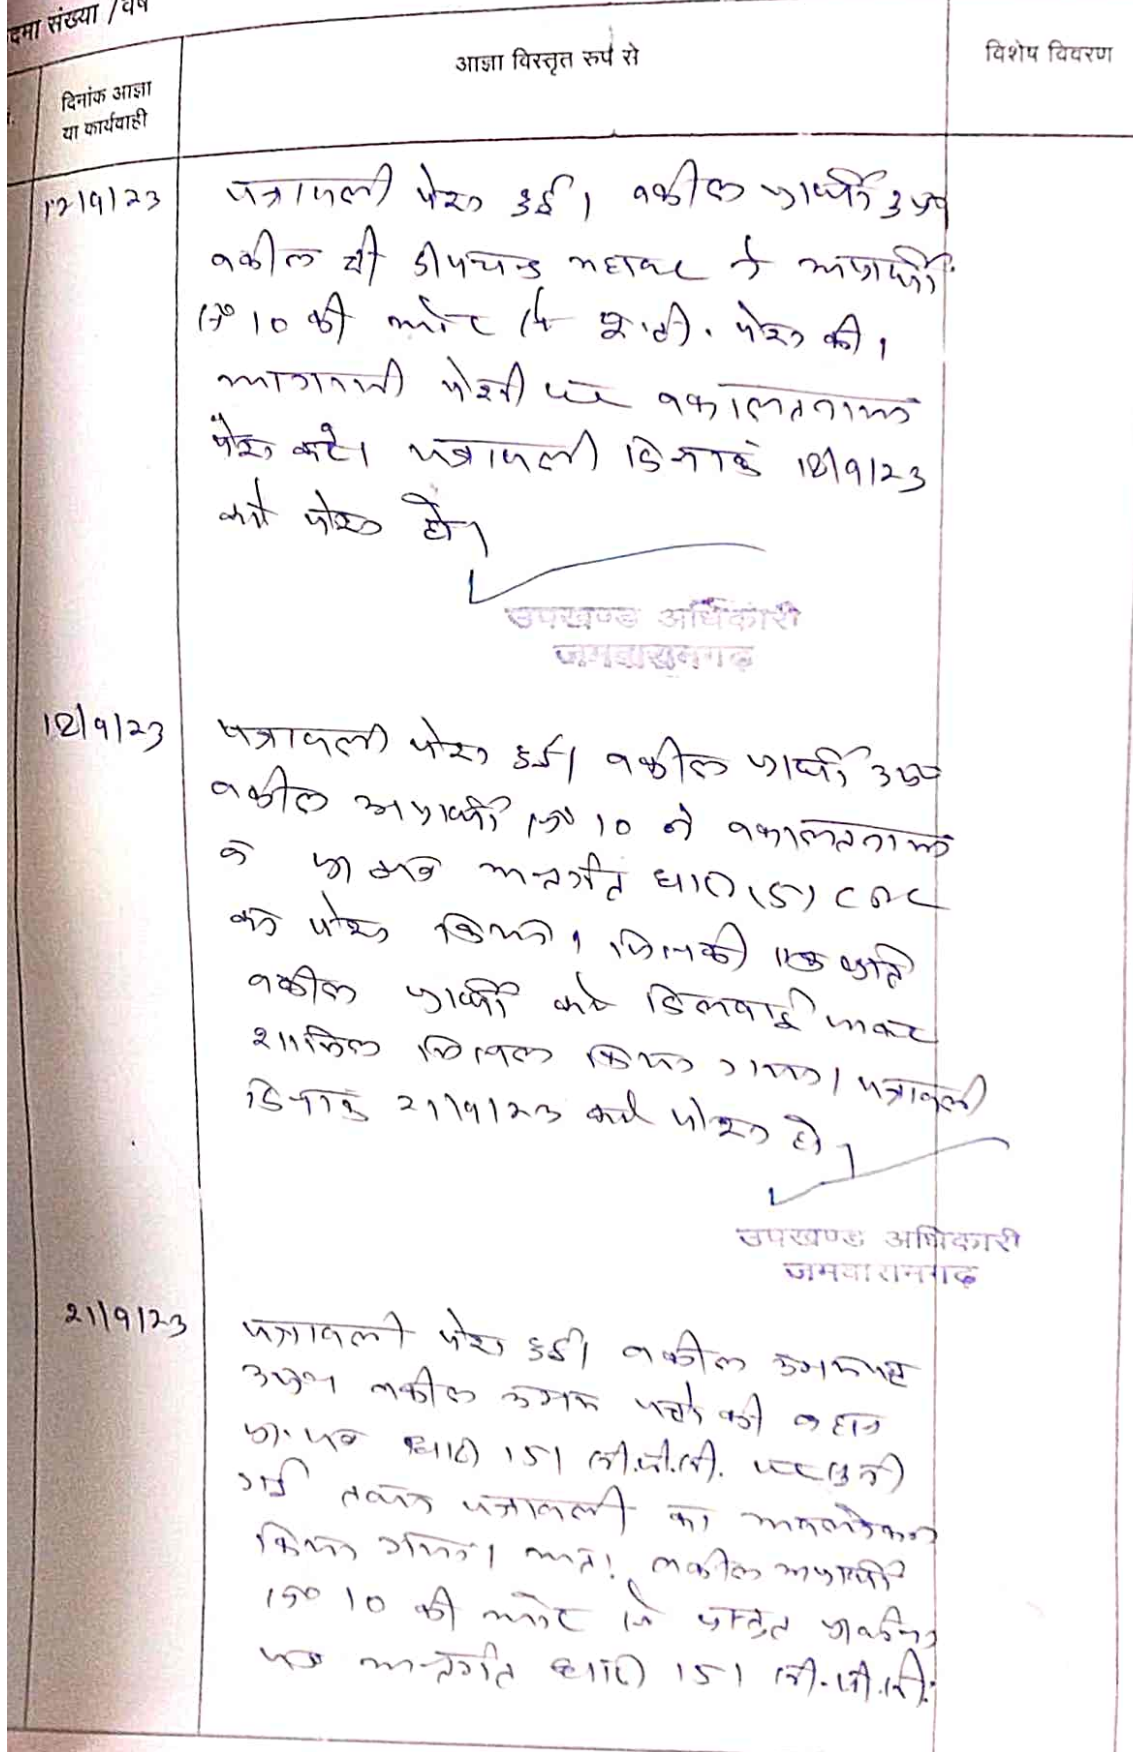 दमा संख्या / वर्ष
दिनांक आज्ञा
या कार्यवाही
आज्ञा विस्तृत रुप से
विशेष विवरण
12/9/23
पत्रावली पेश हुई। वकील प्रार्थी उप०
वकील श्री दीपचन्द महावर ने अप्रार्थी
सं० 10 की ओर से यू.टी. पेश की।
आगामी पेशी पर वकालतनामा
पेश करे। पत्रावली दिनांक 18/9/23
को पेश हो।
उपखण्ड अधिकारी
जमवारामगढ़
18/9/23
पत्रावली पेश हुई। वकील प्रार्थी उप०
वकील अप्रार्थी सं० 10 ने वकालतनामा
व प्रा पत्र अन्तर्गत धारा 151 CPC
का पेश किया। जिसकी एक प्रति
वकील प्रार्थी को दिलवाई जाकर
शामिल मिसल किया गया। पत्रावली
दिनांक 21/9/23 को पेश हो।
उपखण्ड अधिकारी
जमवारामगढ़
21/9/23
पत्रावली पेश हुई। वकील उभयपक्ष
उप० वकील उभय पक्षो की बहस
प्रा. पत्र धारा 151 सी.पी.सी. पर सुनी
गई पत्रावली का अवलोकन
किया गया। अतः वकील अप्रार्थी
सं० 10 की ओर से प्रस्तुत प्रार्थना
पत्र अन्तर्गत धारा 151 सी.पी.सी.